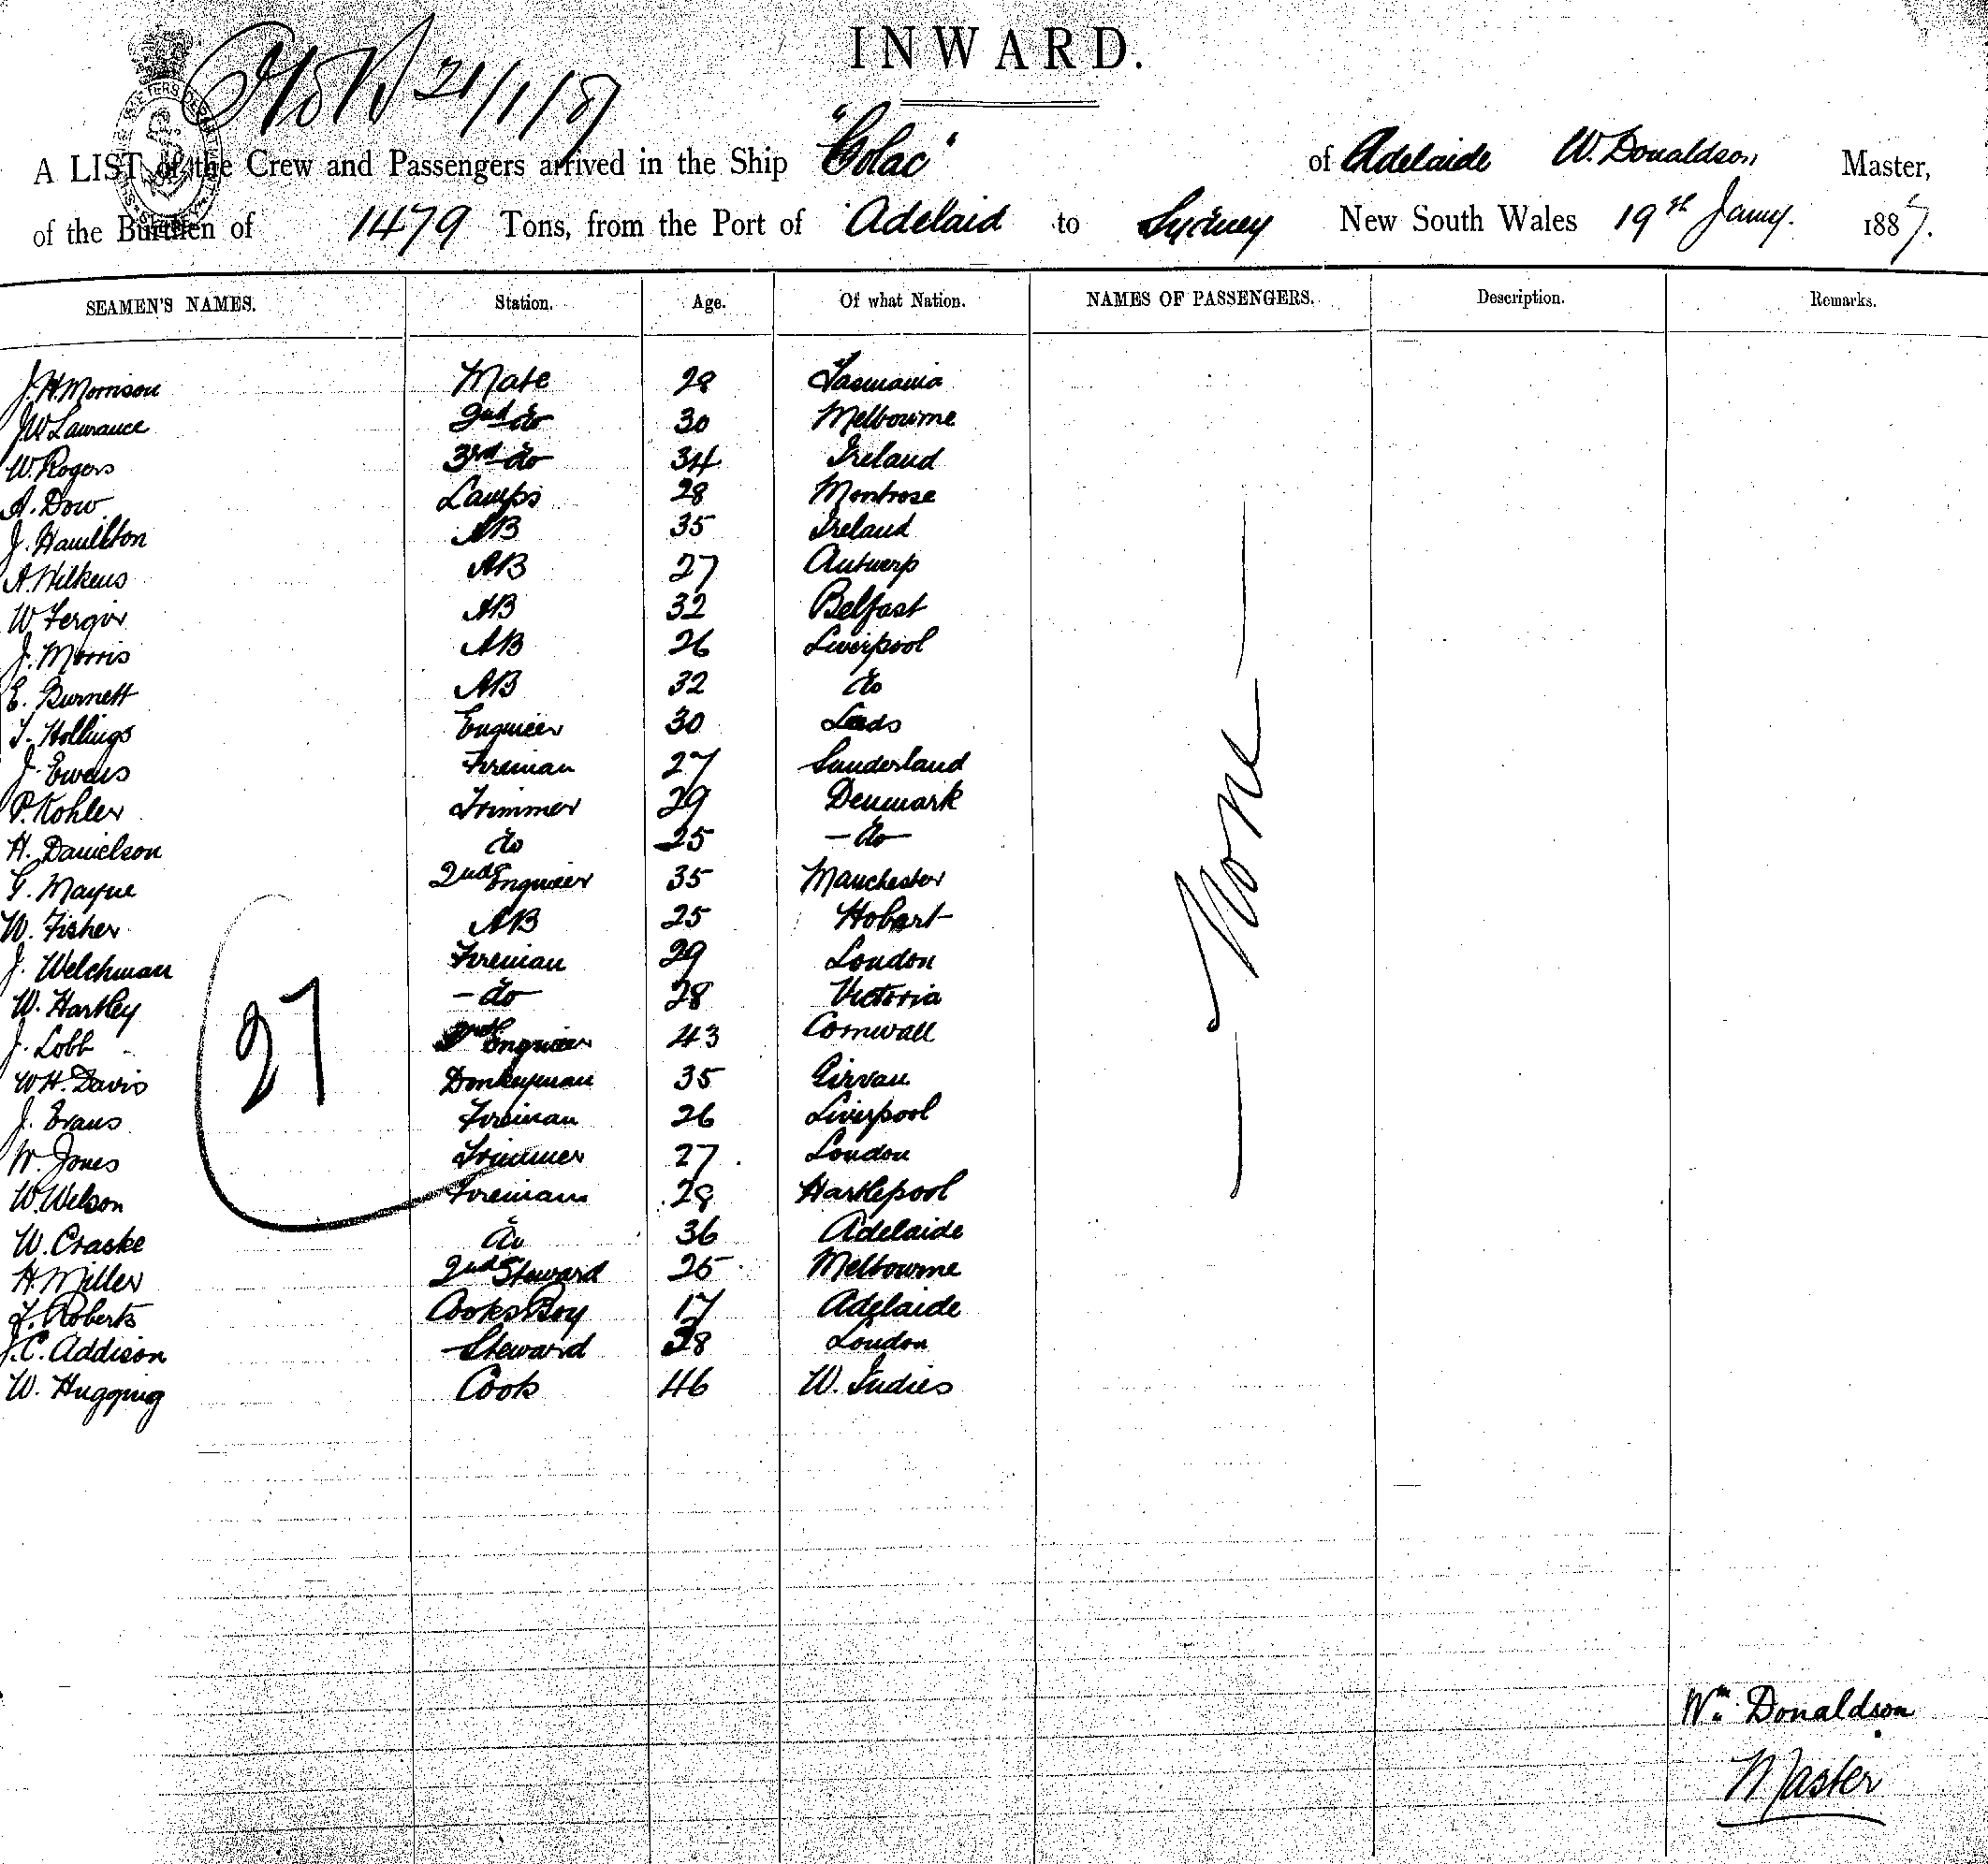 INWARD.
21/1/87
A LIST of the Crew and Passengers arrived in the Ship "Colac" of Adelaide W. Donaldson Master,
of the Burthen of 1479 Tons, from the Port of Adelaid to Sydney New South Wales 19th Jany. 1887.
SEAMEN'S NAMES. Station. Age. Of what Nation. NAMES OF PASSENGERS. Description. Remarks.
J. H. Morrison Mate 28 Tasmania
J W Lawrance 2nd do 30 Melbourne
W. Rogers 3rd do 34 Ireland
A. Dow Lamps 28 Montrose
J. Hamilton AB 35 Ireland
A. Wilkens AB 27 Antwerp
W AB 32 Belfast
J. Morris AB 26 Liverpool
E. Burnett AB 32 do
T. Hollings Engineer 30 Leeds
J. Ewens Fireman 27 Sunderland
P. Kohler Trimmer 29 Denmark
H. Danielson do 25 - do -
G. Mayne 2nd Engineer 35 Manchester
W. Fisher AB 25 Hobart
J. Welchman Fireman 29 London
W. Hartley - do - 28 Victoria
J. Lobb Engineer 43 Cornwall
W H. Davis Donkeyman 35 Girvan
J. Evans Fireman 26 Liverpool
W. Jones Trimmer 27 London
W. Wilson Fireman 28 Hartlepool
W. Craske do 36 Adelaide
H. Miller 2nd Steward 25 Melbourne
T. Roberts Cooks Boy 17 Adelaide
J. C. Addison Steward 38 London
W. Hugging Cook 46 W. Indies
27
- None -
Wm. Donaldson
Master